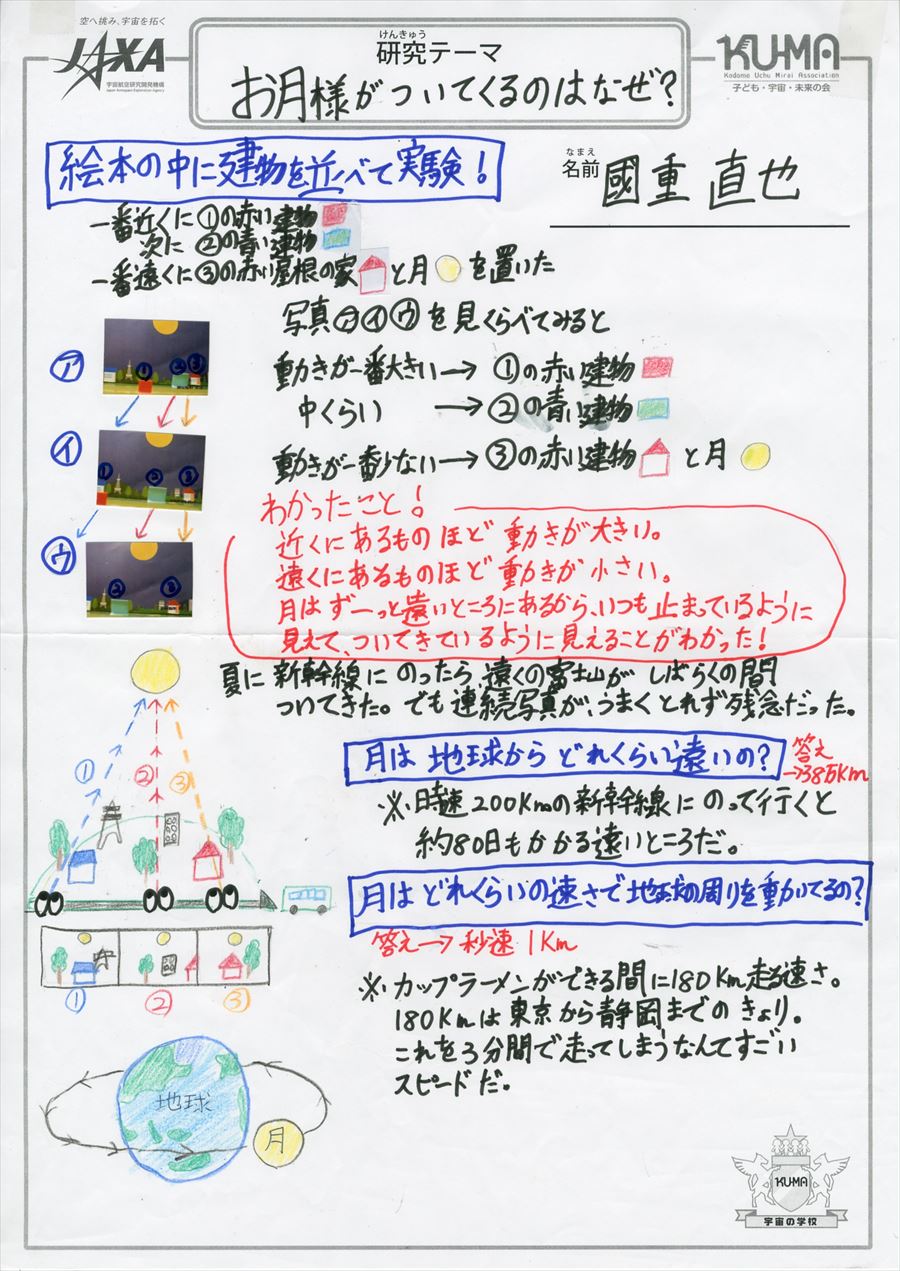 空へ挑み、宇宙を拓く
JAXA
宇宙航空研究開発機構
Japan Aerospace Exploration Agency
けんきゅう
研究テーマ
お月様がついてくるのはなぜ?
KU-MA
Kodomo Uchu Mirai Association
子ども・宇宙・未来の会
なまえ
名前 國重 直也
絵本の中に建物を並べて実験!
一番近くに①の赤い建物
次に ②の青い建物
一番遠くに③の赤い屋根の家 と月 を置いた
写真㋐㋑㋒を見くらべてみると
㋐
① ② ③
動きが一番大きい→ ①の赤い建物
中くらい → ②の青い建物
㋑
① ② ③
動きが一番少ない→ ③の赤い建物 と月
㋒
② ③
わかったこと!
近くにあるものほど 動きが大きい。
遠くにあるものほど 動きが小さい。
月はずーっと遠いところにあるから、いつも止まっているように
見えて、ついてきているように見えることがわかった!
夏に新幹線にのったら、遠くの富士山が しばらくの間
ついてきた。でも連続写真が、うまくとれず残念だった。
① ② ③
月は 地球から どれくらい遠いの?
答え
→38万Km
※時速200Kmの新幹線にのって行くと
約80日もかかる遠いところだ。
月は どれくらいの速さで地球の周りを動いてるの?
答え→秒速1Km
※カップラーメンができる間に180Km走る速さ。
180Kmは東京から静岡までのきょり。
これを3分間で走ってしまうなんてすごい
スピードだ。
① ② ③
地球
月
KU-MA
宇宙の学校